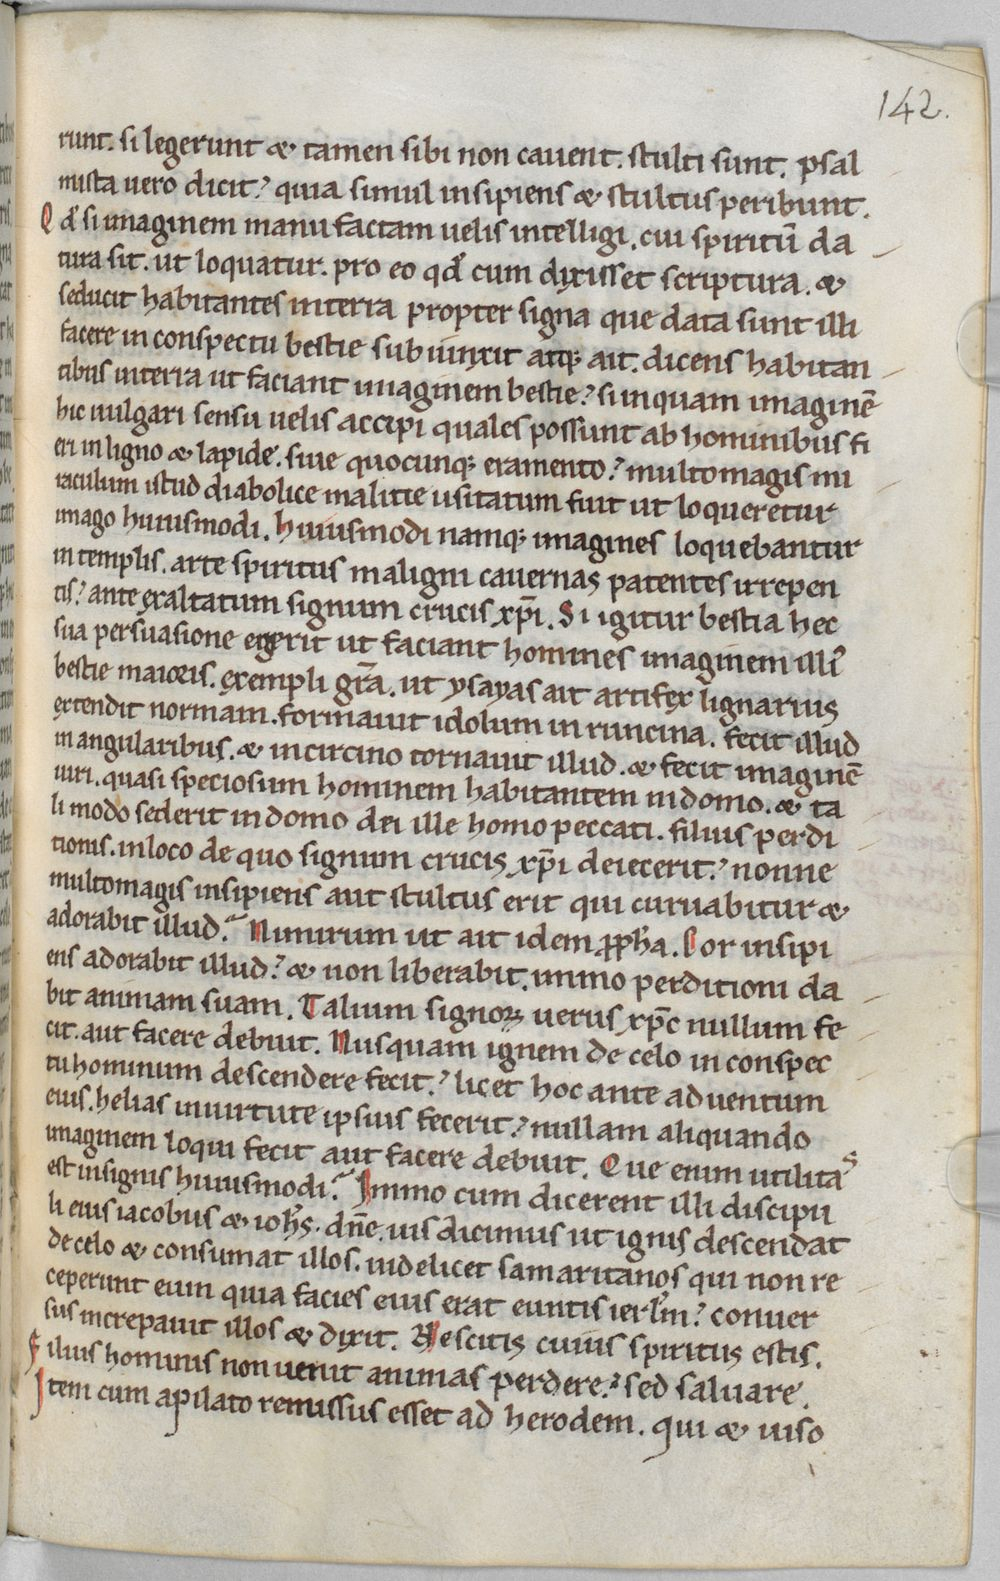 142.
runt. si legerunt & tamen sibi non cauent. stulti sunt. psal
mista uero dicit? quia simul insipiens & stultus peribunt.
Qđ si imaginem manu factam uelis intelligi. cui spiritū da
tura sit. ut loquatur. pro eo qđ cum dixisset scriptura. &
seducit habitantes in terra propter signa que data sunt illi
facere in conspectu bestie subiunxit atq; ait. dicens habitan
tibus in terra ut faciant imaginem bestie? si inquam imaginē
hic uulgari sensu uelis accipi quales possunt ab hominibus fi
eri in ligno & lapide. siue quocunq; eramento? multo magis mi
raculum istud diabolice malitie usitatum fuit ut loqueretur
imago huiusmodi. Huiusmodi namq; imagines loquebantur
in templis. arte spiritus maligni cauernas patentes irrepen
tis? ante exaltatum signum crucis xp̄i. Si igitur bestia hec
sua persuasione egerit ut faciant homines imaginem illi
bestie maioris. exempli gr̄a. ut ysayas ait artifex lignarius
extendit normam. formauit idolum in runcina. fecit illud
in angularibus. & in circino tornauit illud. & fecit imaginē
uiri. quasi speciosum hominem habitantem in domo. & ta
li modo sederit in domo dei ille homo peccati. filius perdi
tionis. in loco de quo signum crucis xp̄i deiecerit? nonne
multo magis insipiens aut stultus erit qui curuabitur &
adorabit illud? Nimirum ut ait idem ꝓph̄a. Cor insipi
ens adorabit illud? & non liberabit. immo perditioni da
bit animam suam. Talium signoꝝ uerus xp̄c nullum fe
cit. aut facere debuit. Nusquam ignem de celo in conspec
tu hominum descendere fecit? licet hoc ante aduentum
eius. helias in uirtute ipsius fecerit? nullam aliquando
imaginem loqui fecit aut facere debuit. Que enim utilitas
est in signis huiusmodi? Immo cum dicerent illi discipu
li eius iacobus & ioh̄s. dn̄e. uis dicimus ut ignis descendat
de celo & consumat illos. uidelicet samaritanos qui non re
ceperunt eum quia facies eius erat euntis ierl̄m? conuer
sus increpauit illos & dixit. Nescitis cuius spiritus estis.
Filius hominis non uenit animas perdere? sed saluare.
Item cum a pilato remissus esset ad herodem. qui & uiso